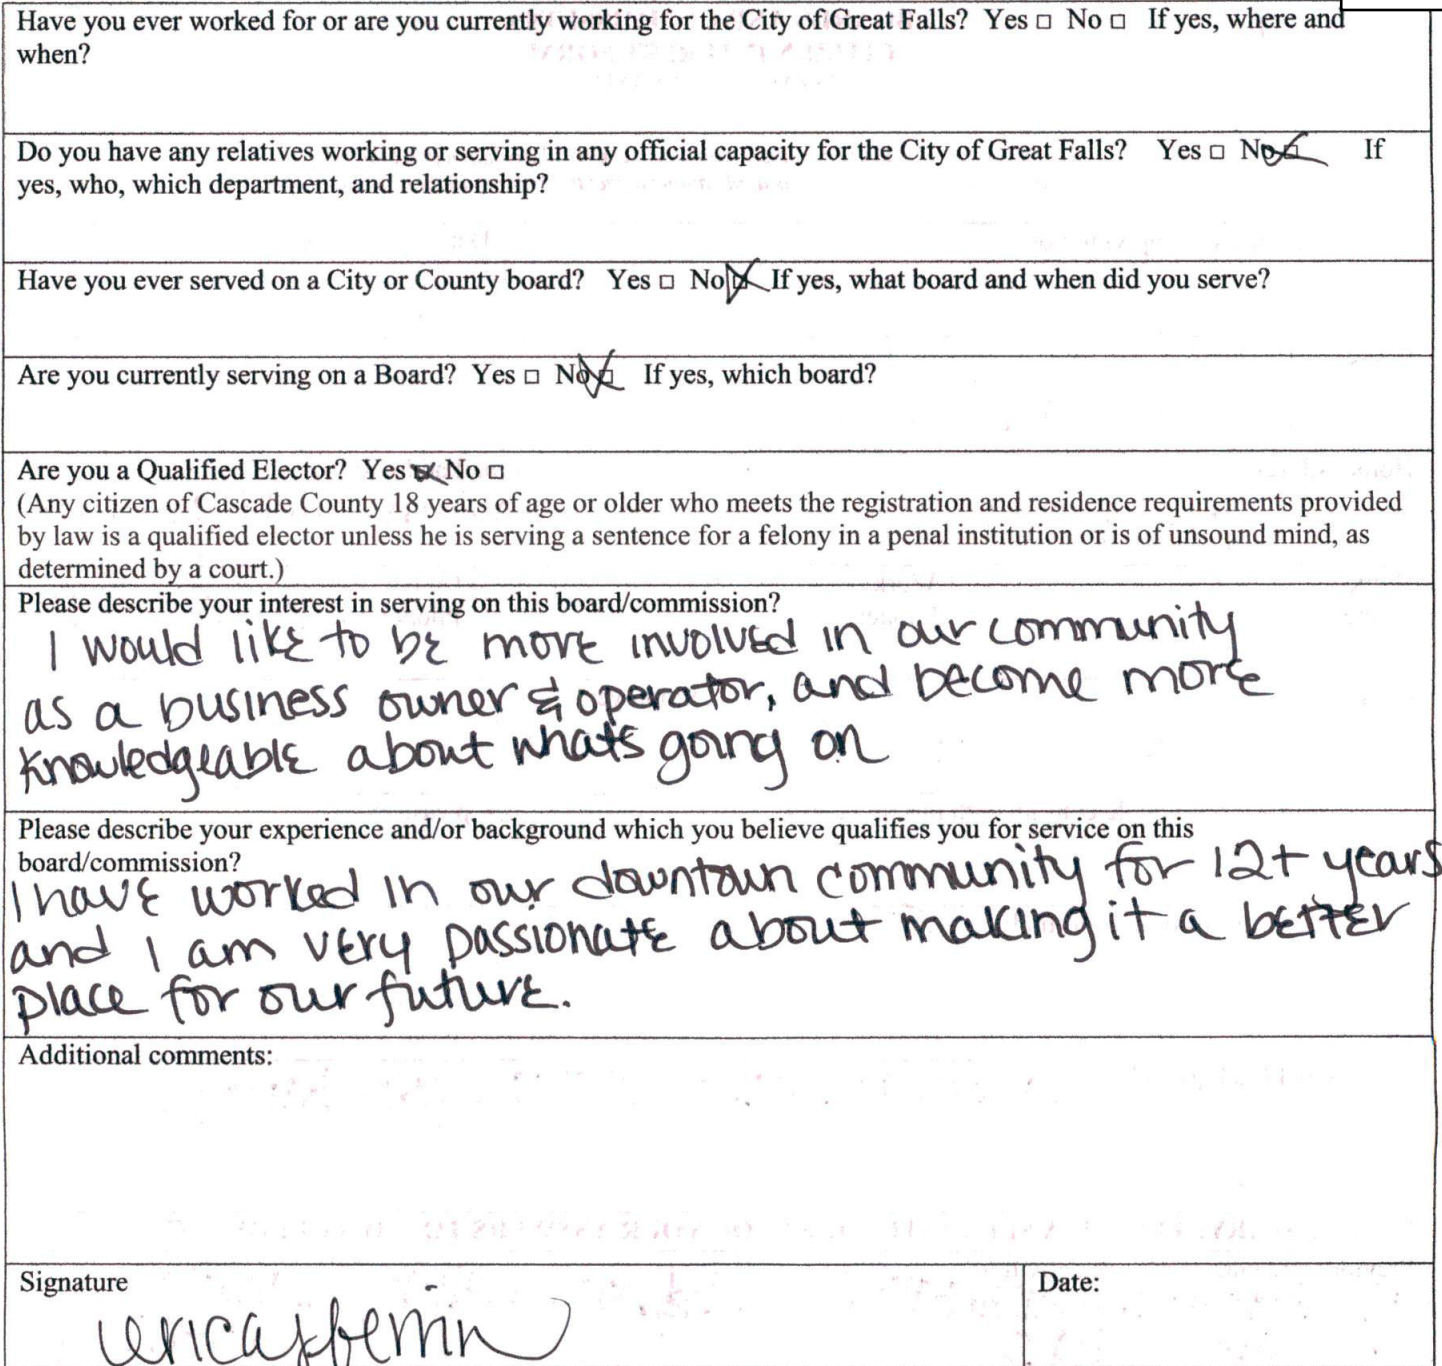 Have you ever worked for or are you currently working for the City of Great Falls? Yes □ No □ If yes, where and
when?
Do you have any relatives working or serving in any official capacity for the City of Great Falls? Yes □ No ☒ If
yes, who, which department, and relationship?
Have you ever served on a City or County board? Yes □ No ☒ If yes, what board and when did you serve?
Are you currently serving on a Board? Yes □ No ☒ If yes, which board?
Are you a Qualified Elector? Yes ☒ No □
(Any citizen of Cascade County 18 years of age or older who meets the registration and residence requirements provided
by law is a qualified elector unless he is serving a sentence for a felony in a penal institution or is of unsound mind, as
determined by a court.)
Please describe your interest in serving on this board/commission?
I would like to be more involved in our community
as a business owner & operator, and become more
knowledgeable about whats going on
Please describe your experience and/or background which you believe qualifies you for service on this
board/commission?
I have worked in our downtown community for 12+ years
and I am very passionate about making it a better
place for our future.
Additional comments:
Signature
Date: